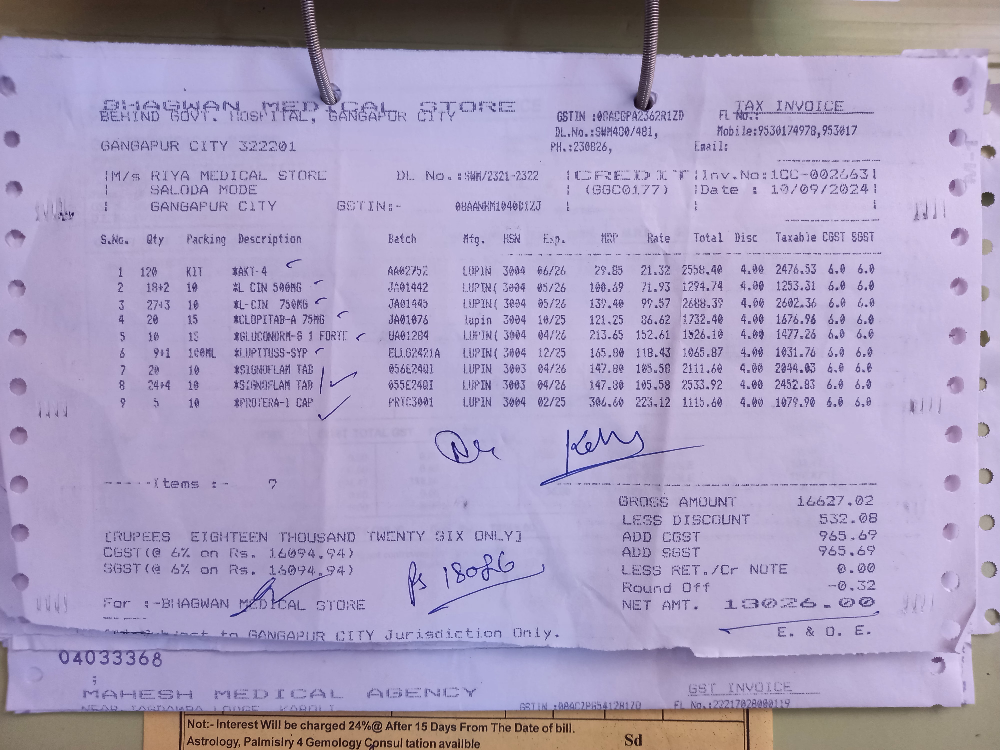 BHAGWAN MEDICAL STORE
BEHIND GOVT. HOSPITAL, GANGAPUR CITY
GANGAPUR CITY 322201
GSTIN :08ACGPA2362R1ZD
DL.No.:SWM480/481,
PH.:230826,
TAX INVOICE
FL No.:
Mobile:9530174978,953017
Email:
M/s RIYA MEDICAL STORE
SALODA MODE
GANGAPUR CITY
DL No.:SWM/2321-2322
GSTIN:-
CREDIT
(GGC0177)
Inv.No:1CC-0026631
Date : 10/09/2024
S.No. Qty Packing Description Batch Mfg. HSN Exp. MRP Rate Total Disc Taxable CGST SGST
1 120 KIT *AKT-4 AA02752 LUPIN 3004 06/26 29.85 21.32 2558.40 4.00 2476.53 6.0 6.0
2 18+2 10 *L CIN 500MG JA01442 LUPIN( 3004 05/26 100.69 71.93 1294.74 4.00 1253.31 6.0 6.0
3 27+3 10 *L-CIN 750MG JA01445 LUPIN( 3004 05/26 139.40 99.57 2688.39 4.00 2602.36 6.0 6.0
4 20 15 *CLOPITAB-A 75MG JA01076 lupin 3004 10/25 121.25 86.62 1732.40 4.00 1676.96 6.0 6.0
5 10 15 *GLUCONORM-G 1 FORTE LUPIN( 3004 04/26 213.65 152.61 1526.10 4.00 1477.26 6.0 6.0
6 9+1 100ML *LUPITUSS-SYP LUPIN( 3004 12/25 165.80 118.43 1065.87 4.00 1031.76 6.0 6.0
7 20 10 *SIGNOFLAM TAB LUPIN 3003 04/26 147.80 105.58 2111.60 4.00 2044.03 6.0 6.0
8 24+4 10 *SIGNOFLAM TAB LUPIN 3003 04/26 147.80 105.58 2533.92 4.00 2452.83 6.0 6.0
9 5 10 LUPIN 3004 02/25 223.12 1115.60 4.00 1079.90 6.0 6.0
-----Items :- 7
GROSS AMOUNT 16627.02
LESS DISCOUNT 532.08
ADD CGST 965.69
ADD SGST 965.69
LESS RET./Cr NOTE 0.00
Round Off -0.32
NET AMT. 18026.00
[RUPEES EIGHTEEN THOUSAND TWENTY SIX ONLY]
CGST(@ 6% on Rs. 16094.94)
SGST(@ 6% on Rs. 16094.94)
18026
For :-BHAGWAN MEDICAL STORE
to GANGAPUR CITY Jurisdiction Only.
E. & O. E.
04033368
MAHESH MEDICAL AGENCY
GST INVOICE
Not:- Interest Will be charged 24%@ After 15 Days From The Date of bill.
Astrology, Palmisiry 4 Gemology Consul tation availble
Sd